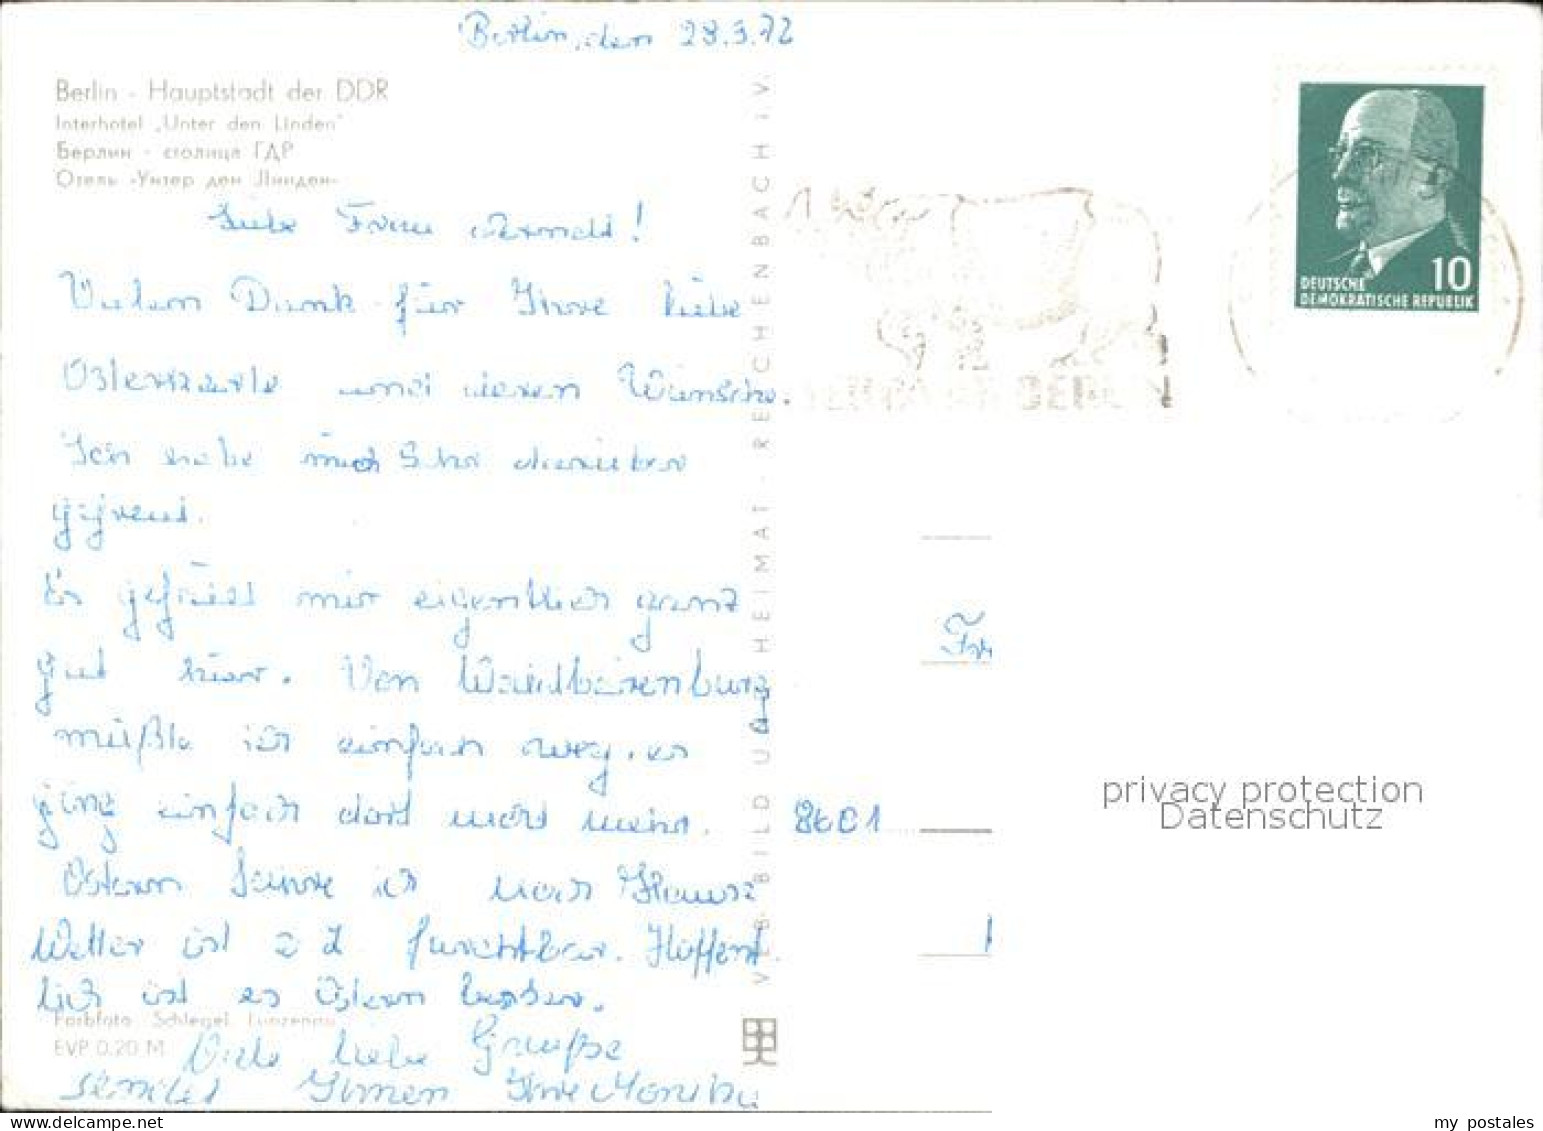 Berlin, den 28.3.72
Berlin - Hauptstadt der DDR
Interhotel „Unter den Linden"
Берлин - столица ГДР
Отель «Унтер ден Линден»
Liebe Frau
Vielen Dank für Ihre liebe
Osterkarte und deren Wünsche.
Ich habe mich sehr darüber
gefreut.
Es gefällt mir eigentlich ganz
gut hier. Von Waldbärenburg
mußte ich einfach weg, es
ging einfach dort nicht mehr.
Ostern fahre ich nach Hause
Wetter ist z Z furchtbar. Hoffent-
lich ist es Ostern besser.
Viele liebe Grüße
sendet Ihnen Ihre Monika
Farbfoto Schlegel Lunzenau
EVP 0.20 M
VEB BILD UND HEIMAT · REICHENBACH i. V.
DEUTSCHE
DEMOKRATISCHE REPUBLIK
10
Fr
8601
privacy protection
Datenschutz
delcampe.net
my_postales